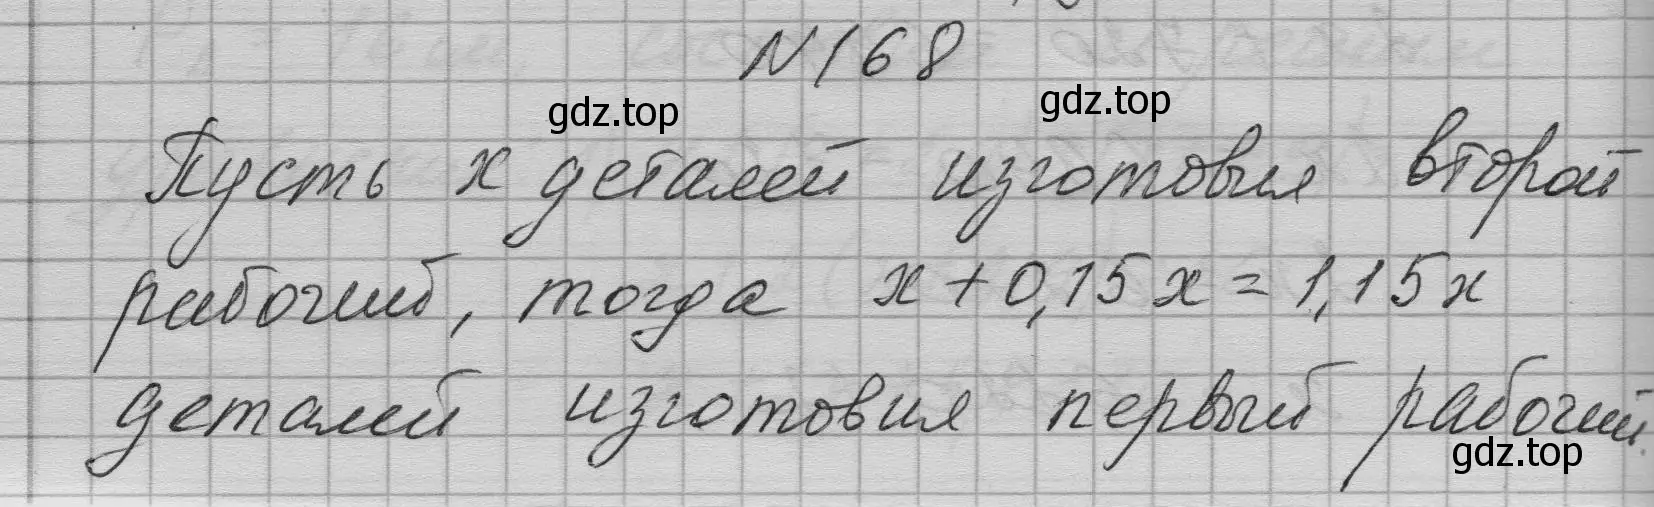 N168
gdz.top gdz.top
Пусть x деталей изготовил второй
рабочий, тогда x+0,15x=1,15x
деталей изготовил первый рабочий.
gdz.top